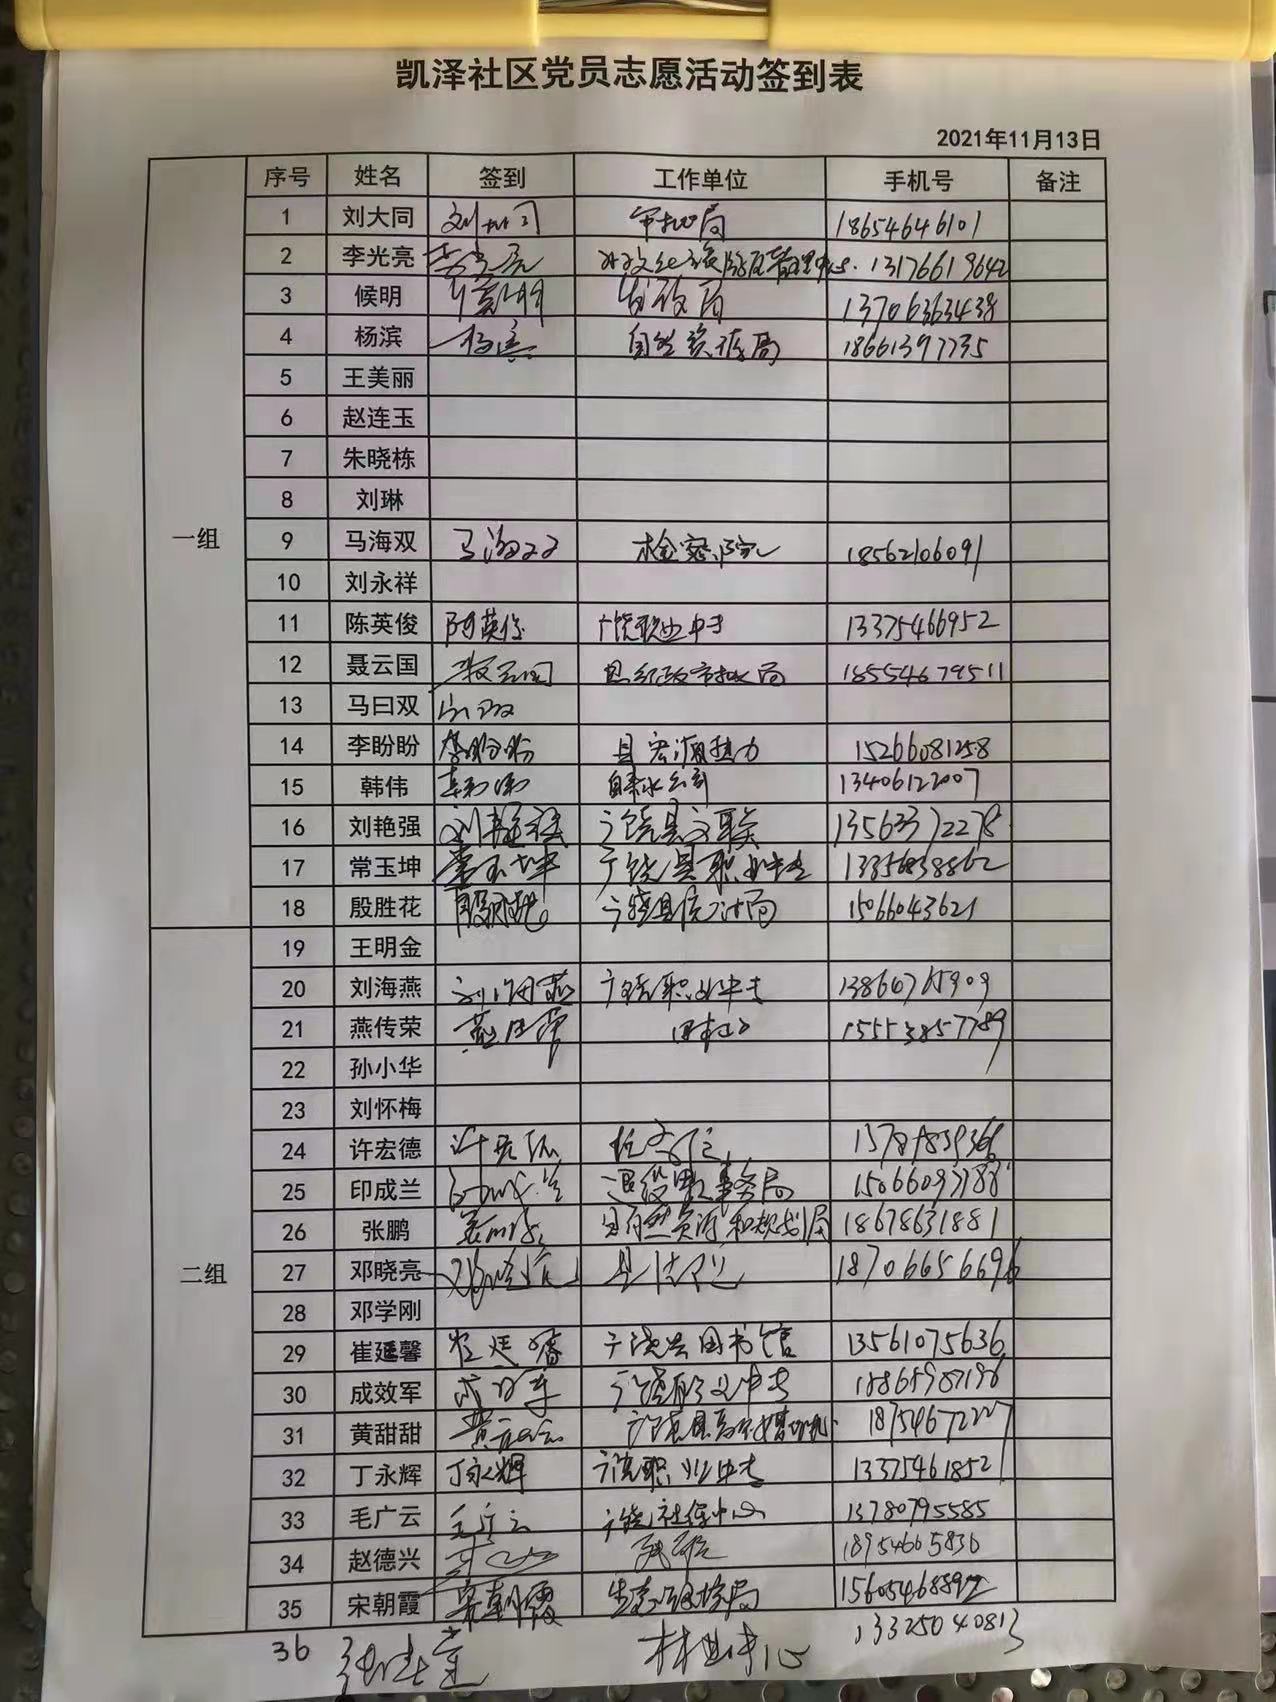 凯泽社区党员志愿活动签到表
2021年11月13日
序号 姓名 签到 工作单位 手机号 备注
一组
1 刘大同 刘大同 审批局 18654646101
2 李光亮 李光亮 13176619642
3 候明 发改局 13706363438
4 杨滨 杨滨 自然资源局 18661397735
5 王美丽
6 赵连玉
7 朱晓栋
8 刘琳
9 马海双 马海双 检察院 18562106091
10 刘永祥
11 陈英俊 陈英俊 广饶职业中专 13375466952
12 聂云国 聂云国 县行政审批局 18554679511
13 马曰双
14 李盼盼 李盼盼 县宏源热力 15266081258
15 韩伟 韩伟 自来水公司 13406122007
16 刘艳强 刘艳强 广饶县文联 13563372278
17 常玉坤 常玉坤 广饶县职业中专 13356838862
18 殷胜花 殷胜花 广饶县信访局 15066043621
二组
19 王明金
20 刘海燕 刘海燕 广饶职业中专
21 燕传荣 燕传荣 15553857789
22 孙小华
23 刘怀梅
24 许宏德 许宏德
25 印成兰 印成兰 退役军人事务局 15066093788
26 张鹏 县自然资源和规划局 18678631881
27 邓晓亮 邓晓亮 县法院 18706656696
28 邓学刚
29 崔延馨 崔廷馨 广饶县图书馆 13561075636
30 成效军 成效军 广饶职业中专
31 黄甜甜 18754672227
32 丁永辉 丁永辉 广饶职业中专 13375461852
33 毛广云 毛广云 广饶社保中心 13780795585
34 赵德兴 18954665836
35 宋朝霞 宋朝霞 生态环境局 15605468892
36 林业中心 13325040813